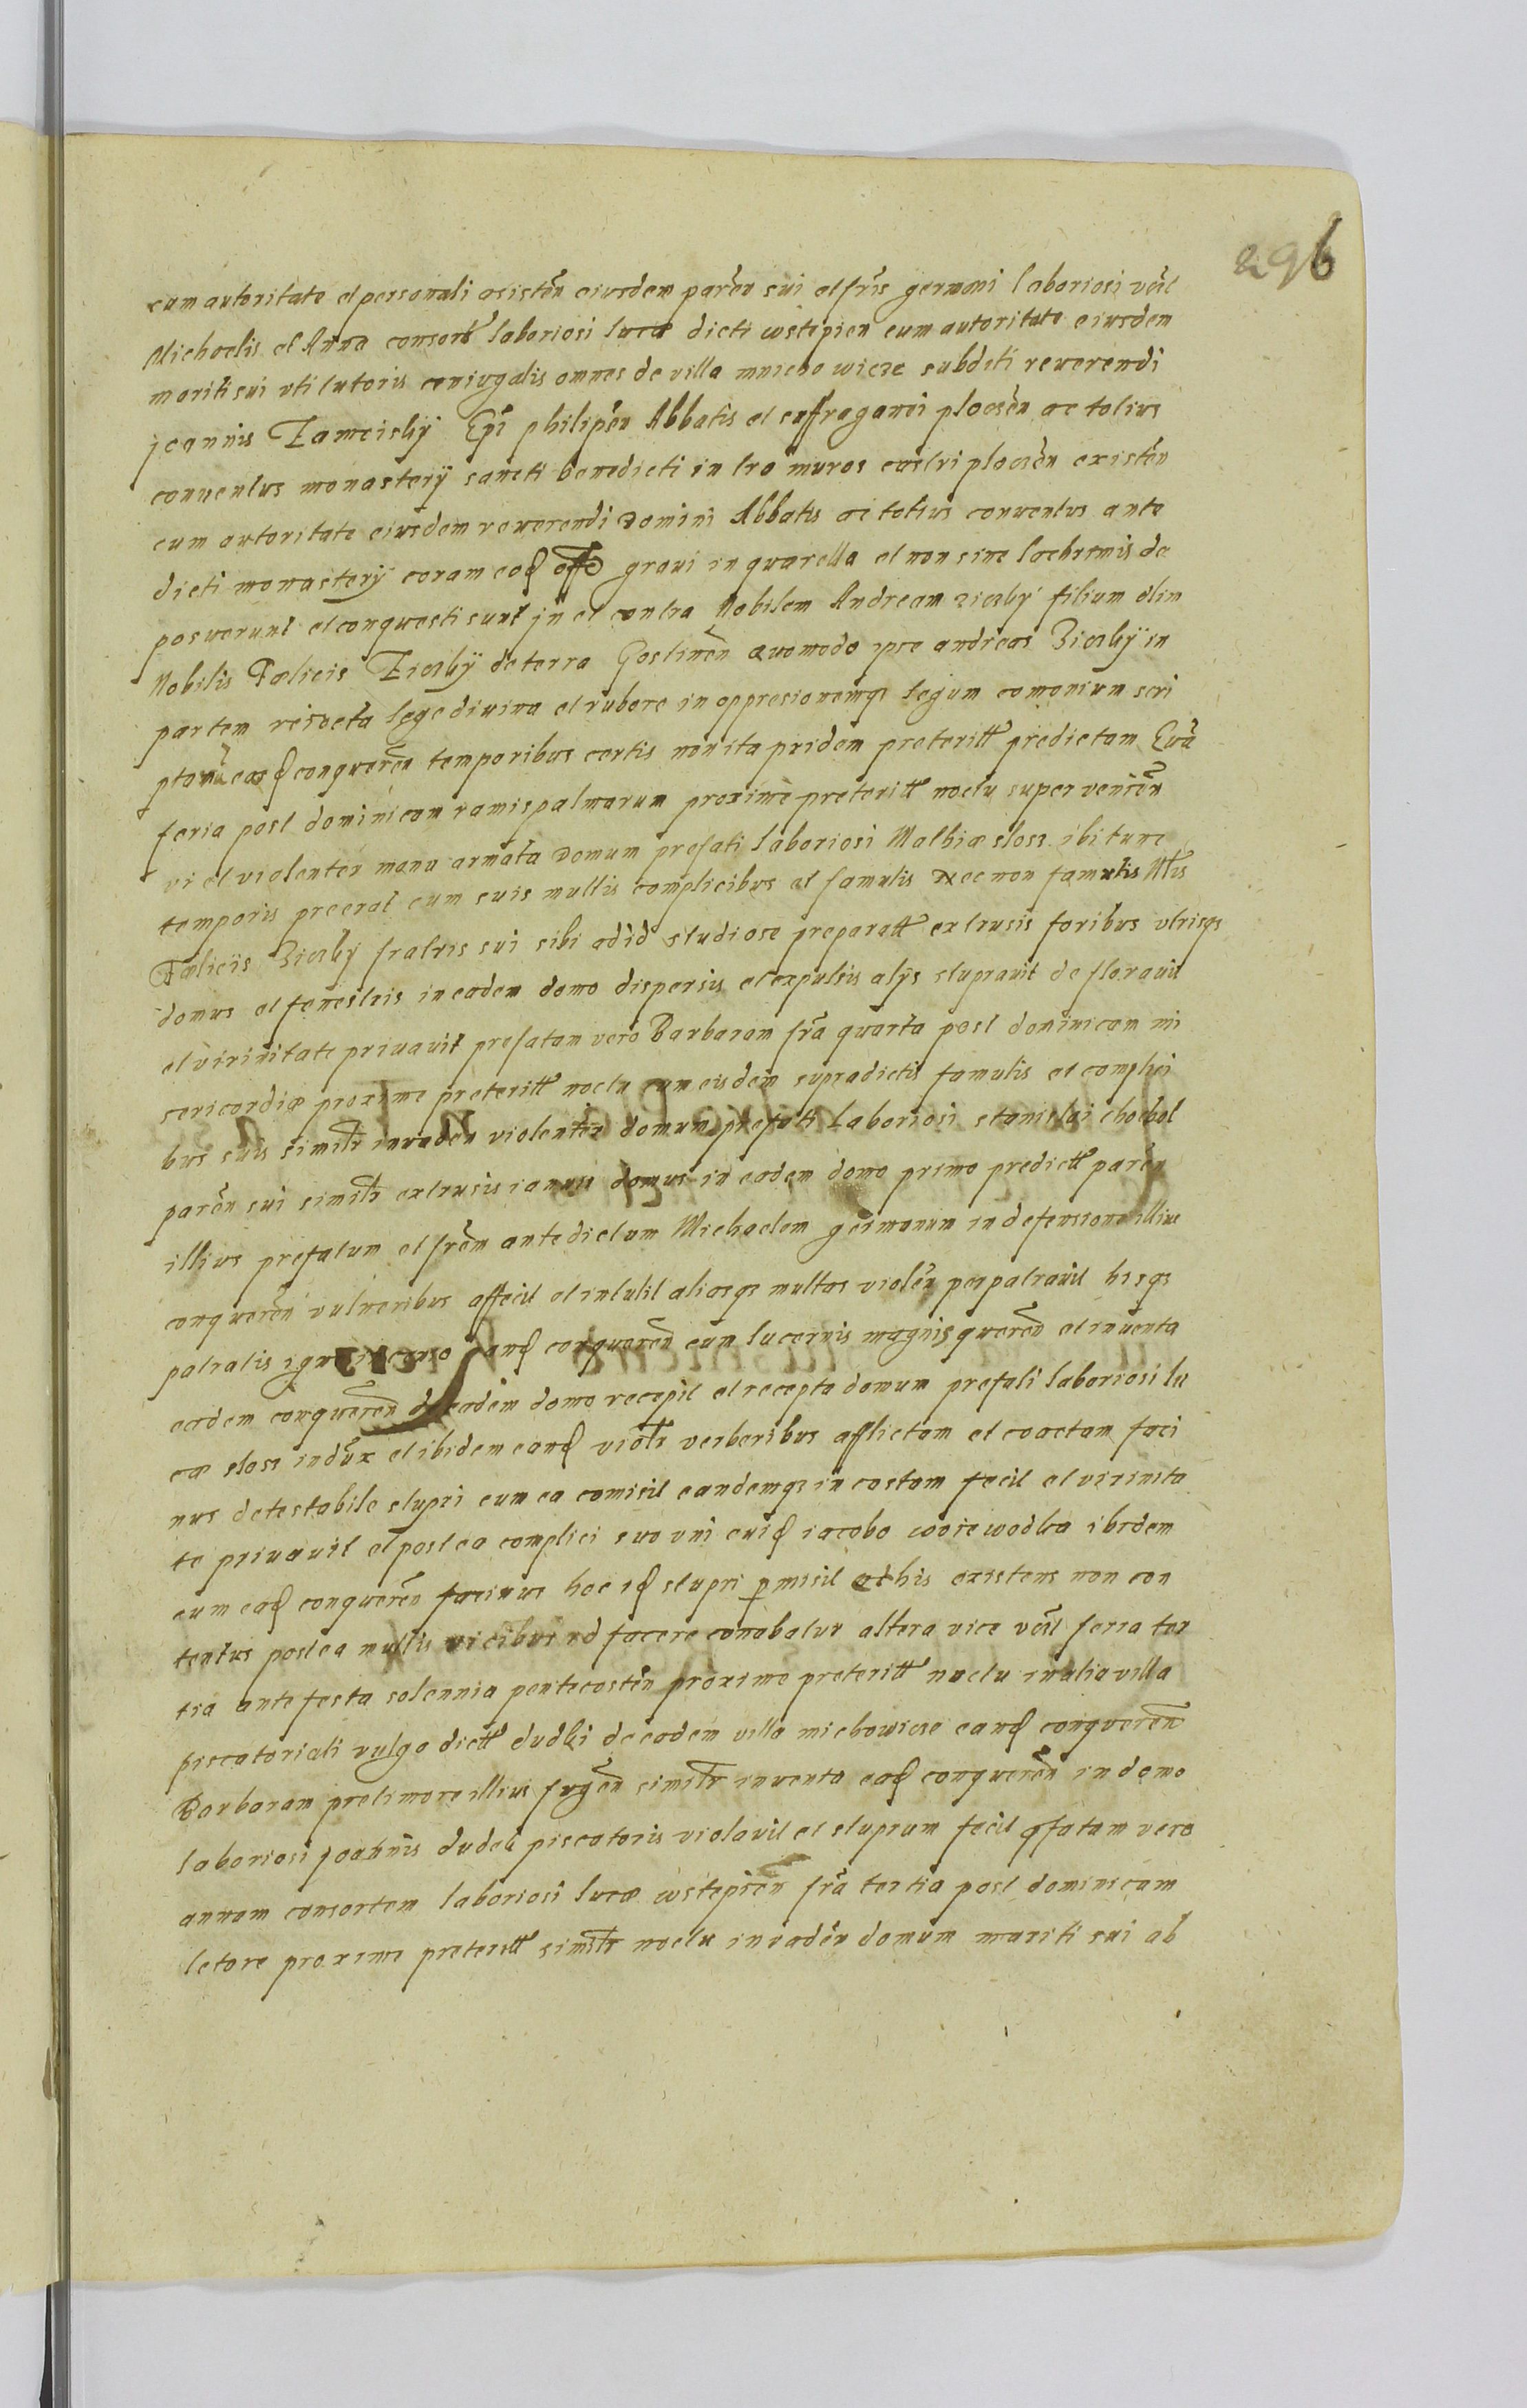 296
cum autoritate et personali asisten̄ eiusdem paren̄ sui et fr̄is germani laboriosi vēl
Michaelis et Anna consort̄ laboriosi lucæ dicti wstepien cum autoritate eiusdem
mariti sui vti tutoris coniugalis omnes de villa mnicho wicze subditi reuerendi
joannis Zameisky Ep̄i philipen̄ Abbatis et suffraganei plocsēn ac totius
conuentus monastery sancti benedicti intro muros castri plocsēn existēn
cum autoritate eiusdem reuerendi domini Abbatis ac totius conuentus ante
dicti monastery coram eod off̄o graui in querella et non sine lachrimis de
posuerunt et conquesti sunt jn et contra Nobilem Andream zicsky filium olim
Nobilis Fælicis Zicsky de terra Gostinēn quomodo ipse andreas Zicsky in
partem reiecta lege diuina et rubore in oppresionemqз legum comonium scri
ptarū easd conquerēn temporibus certis non ita pridem preteritt predictam Euā
feria post dominicam ramispalmarum proxime preteritt noctu super veniēn
vi et violenter manu armata domum prefati laboriosi Mathiæ sloss ibi tunc
temporis preerat cum suis multis complicibus et famulis nec non famulis Nb̄lis
Fæliciis Zicsky fratris sui sibi ad id studiose preparatt extrusis foribus vtrisqз
domus et fenestris in eadem domo dispersis et expulsis alys stuprauit deflorauit
et virinitate priuauit prefatam vero Barbaram fr̄a quarta post dominicam mi
sericordiæ proxime preteritt noctu cum eisdem supradictis famulis et complici
bus suis similr inuaden violenter domum prefati laboriosi stanislai chochol
parēn sui similr extrusis ianuis domus in eadem domo primo predictt parēn
illius prefatum et fr̄em antedictum Michaelem germanum in defensione illius
conquerēn vulneribus affecit et intulit aliasqз multas violēn perpatrauit hisqз
patratis igne incenso eand conquerēn cum lucernis magnis querēn et inuenta
eadem conquerēn de eadem domo recepit et recepta domum prefati laboriosi lu
cæ sloss indux et ibidem eand violr verberibus afflictam et coactam faci
nus detestabile stupri cum ea comisit eandemqз in castam fecit et virinita
te priuauit et postea complici suo vni cuid iacobo woiewodka ibidem
cum ead conquerēn facinus hoc id stupri pmisit et his existens non con
tentus postea multis vicibus id facere conabatur altera vice vēl feria ter
tia ante festa solennia pentecostēn proxime preteritt noctu in alia villa
piscatoriali vulgo dictt dudki de eadem villa michowicze eand conquerēn
Barbaram pre timore illius fugēn similr inuenta ead conquerēn in domo
laboriosi joannis dudek piscatoris violauit et stuprum fecit pfatam vero
annam consortem laboriosi lucæ wstepien fr̄a tertia post dominicam
letare proxime preteritt similr noctu inuadēn domum mariti sui ab